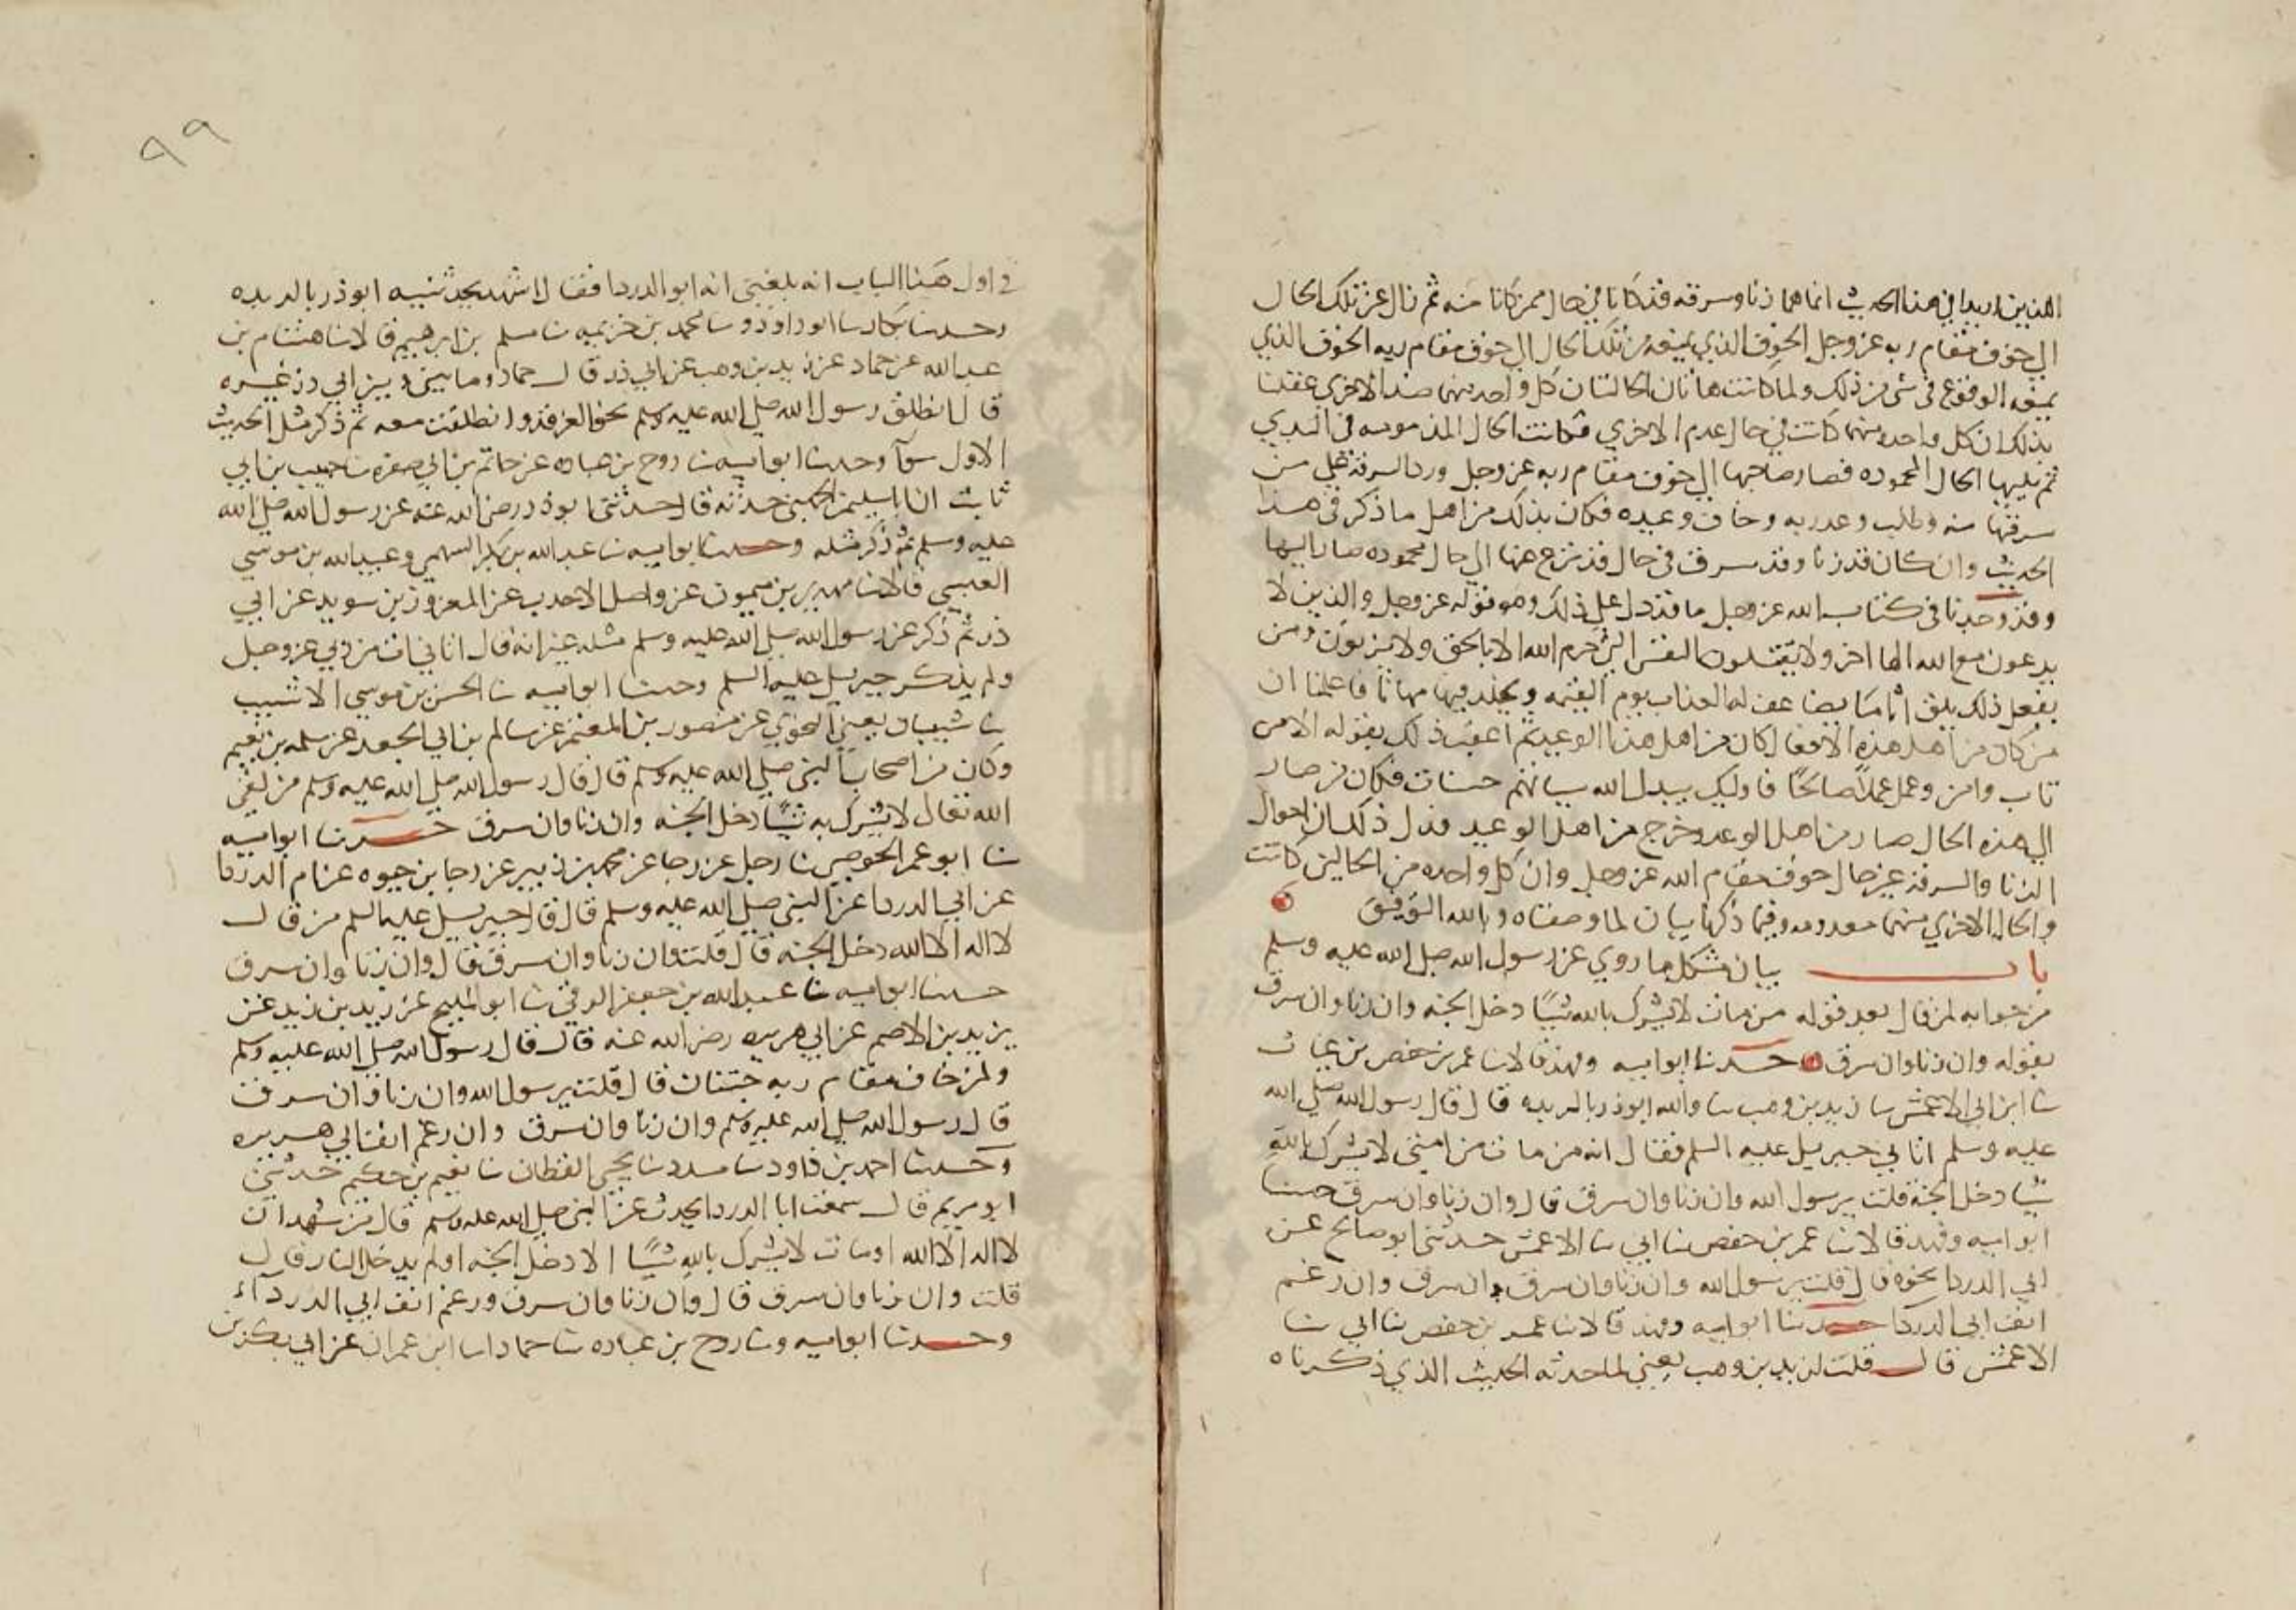 اللذين اريدا في هذا الحديث انما هما زنا وسرقه قد كانا في حال ممن كانا منه ثم زال عن تلك الحال
الي خوف مقام ربه عز وجل الخوف الذي يمنعه من تلك الحال الي خوف مقام ربه الخوف الذي
يمنعه الوقوع في شي من ذلك ولما كانت هاتان الحالتان كل واحده منهما ضد الاخري عقلنا
بذلك ان كل واحده منهما كانت في حال عدم الاخري فكانت الحال المذمومه في البدي
ثم تليها الحال المحموده فصار صاحبها الي خوف مقام ربه عز وجل ورد السرقه علي من
سرقها منه وطلب وعد ربه وخاف وعيده فكان بذلك من اهل ما ذكر في هذا
الحديث وان كان قد زنا وقد سرق في حال قد نزع عنها الي حال محموده صار اليها
وقد وجدنا في كتاب الله عز وجل ما قد دل علي ذلك وهو قوله عز وجل والذين لا
يدعون مع الله الها اخر ولا يقتلون النفس التي حرم الله الا بالحق ولا يزنون ومن
يفعل ذلك يلق اثاما يضاعف له العذاب يوم القيمه ويخلد فيه مهانا فاعلمنا ان
من كان من اهل هذه الافعال كان من اهل هذا الوعيد ثم اعقب ذلك بقوله الا من
تاب وامن وعمل عملا صالحا فاوليك يبدل الله سياتهم حسنات فكان من صار
الي هذه الحال صار من اهل الوعد وخرج من اهل الوعيد فدل ذلك ان احوال
الزنا والسرقه غير حال خوف مقام الله عز وجل وان كل واحده من الحالين كانت
والحال الاخري منهما معدومه وفيما ذكرنا بيان لما وصفناه وبالله التوفيق
باب بيان مشكل ما روي عن رسول الله صلي الله عليه وسلم
من جوابه لمن قال بعد قوله من مات لا يشرك بالله شيئا دخل الجنه وان زنا وان سرق
بقوله وان زنا وان سرق حدثنا ابو اميه وفهد قالا ثنا عمر بن حفص بن غياث
ثنا ابي الاعمش ثنا زيد بن وهب ثنا والله ابو ذر بالربده قال قال رسول الله صلي الله
عليه وسلم اتاني جبريل عليه السلم فقال انه من مات من امتي لا يشرك بالله
شيا دخل الجنه قلت يرسول الله وان زنا وان سرق قال وان زنا وان سرق حدثنا
ابو اميه وفهد قالا ثنا عمر بن حفص ثنا ابي ثنا الاعمش حدثني ابو صالح عن
ابي الدردا نحوه قال قلت يرسول الله وان زنا وان سرق وان سرق وان رغم
انف ابي الدردا حدثنا ابو اميه وفهد قالا ثنا عمر بن حفص ثنا ابي ثنا
الاعمش قال قلت لزيد بن وهب يعني لما حدثه الحديث الذي ذكرناه
في اول هذا الباب انه بلغني انه ابو الدردا فقال اشهد لحدثنيه ابو ذر بالربده
وحدثنا بكار ثنا ابو داود وثنا محمد بن خزيمه ثنا مسلم بن ابرهيم قالا ثنا هشام بن
عبد الله عن حماد عن زيد بن وهب عن ابي ذر قال حماد وما بيني وبين ابي ذر غيره
قال انطلق رسول الله صلي الله عليه وسلم نحو الغرقد وانطلقت معه ثم ذكر مثل الحديث
الاول سوآ وحدثنا ابو اميه ثنا روح بن عباده عن حاتم بن ابي صغره ثنا حبيب بن ابي
ثابت ان ابا سليمن الجهني حدثه قال حدثني ابو ذر رضي الله عنه عن رسول الله صلي الله
عليه وسلم ثم ذكر مثله وحدثنا ابو اميه ثنا عبد الله بن بكر السهمي وعبيد الله بن موسي
العبسي قالا ثنا مهدي بن ميمون عن واصل الاحدب عن المعرور بن سويد عن ابي
ذر ثم ذكر عن رسول الله صلي الله عليه وسلم مثله غير انه قال اتاني ات من ربي عز وجل
ولم يذكر جبريل عليه السلم وحدثنا ابو اميه ثنا الحسن بن موسي الاشيب
ثنا شيبان يعني النحوي عن منصور بن المعتمر عن سالم بن ابي الجعد عن سلمه بن نعيم
وكان من اصحاب النبي صلي الله عليه وسلم قال قال رسول الله صلي الله عليه وسلم من لقي
الله تعالي لا يشرك به شيئا دخل الجنه وان زنا وان سرق حدثنا ابو اميه
ثنا ابو عمر الحوضي ثنا رجل عن رجا عن محمد بن زبير عن رجا بن حيوه عن ام الدردا
عن ابي الدردا عن النبي صلي الله عليه وسلم قال قال جبريل عليه السلم من قال
لا اله الا الله دخل الجنه قال قلت وان زنا وان سرق قال وان زنا وان سرق
حدثنا ابو اميه ثنا عبد الله بن جعفر الرقي ثنا ابو المليح عن زيد بن يزيد عن
يزيد بن الاصم عن ابي هريره رضي الله عنه قال قال رسول الله صلي الله عليه وسلم
ولمن خاف مقام ربه جنتان قال قلت يرسول الله وان زنا وان سرق
قال رسول الله صلي الله عليه وسلم وان زنا وان سرق وان رغم انف ابي هريره
وحدثنا احمد بن داود ثنا مسدد ثنا يحيي القطان ثنا نعيم بن حكيم حدثني
ابو مريم قال سمعت ابا الدردا يحدث عن النبي صلي الله عليه وسلم قال من شهد ان
لا اله الا الله او مات لا يشرك بالله شيئا الا دخل الجنه او لم يدخل النار قال
قلت وان زنا وان سرق قال وان زنا وان سرق ورغم انف ابي الدردآء
وحدثنا ابو اميه وثنا روح بن عباده ثنا حماد ثنا ابو عمران عن ابي بكر بن
٩٩